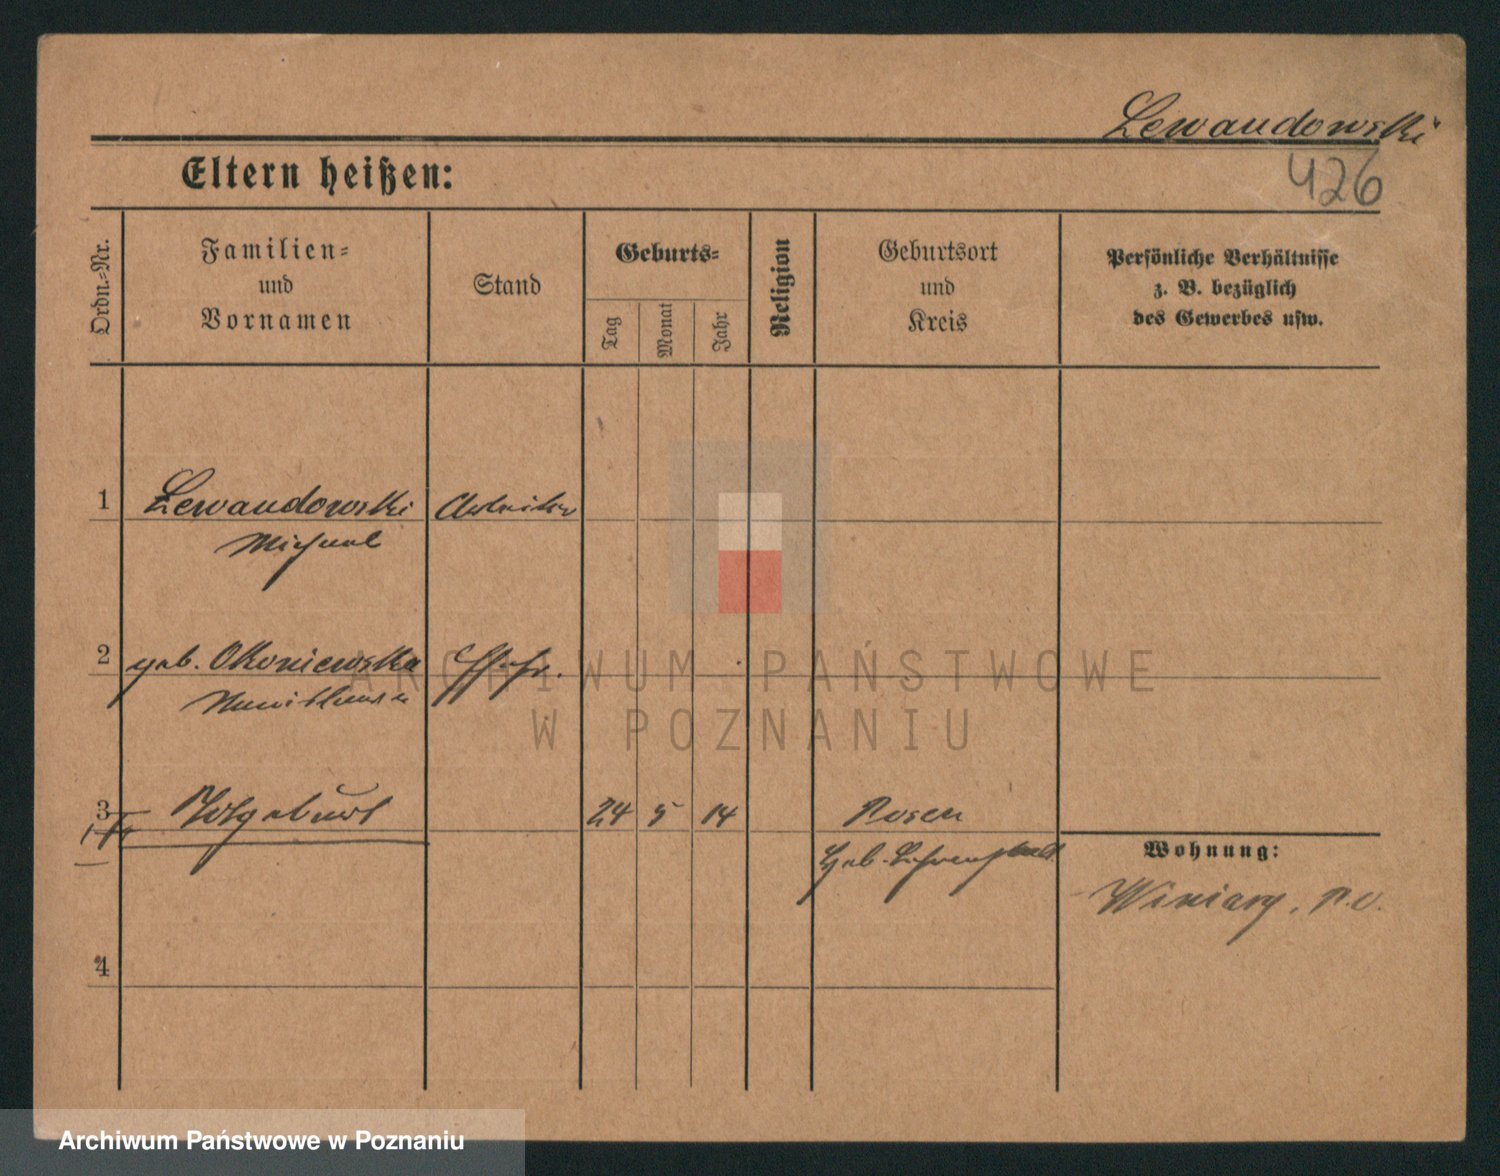 Lewandowski
426
Eltern heißen:
Ordn.=Nr.
Familien=
und
Vornamen
Stand
Geburts=
Tag
Monat
Jahr
Religion
Geburtsort
und
Kreis
Persönliche Verhältnisse
z. B. bezüglich
des Gewerbes usw.
1
Lewandowski
Arbeiter
Michael
2
geb. Okoniewska
Ehefr.
3
Totgeburt
24
5
14
Posen
Geb.
Wohnung:
Winiary, P.O.
4
ARCHIWUM PAŃSTWOWE
W POZNANIU
Archiwum Państwowe w Poznaniu